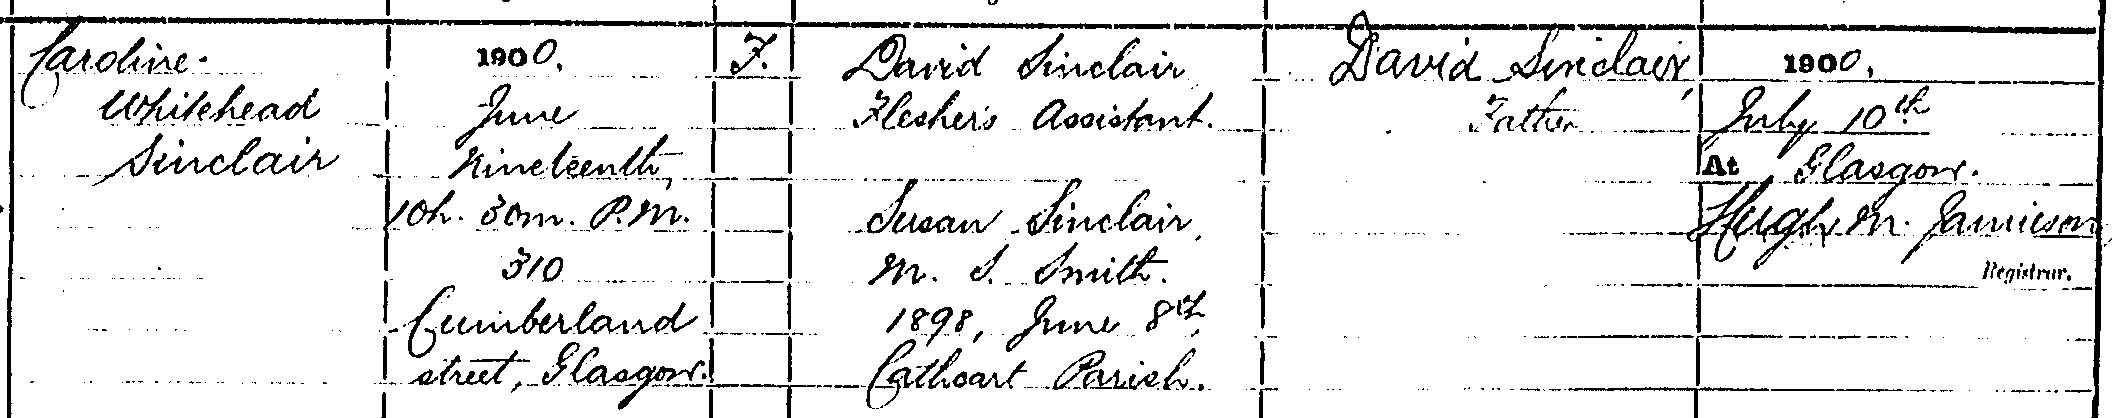 Caroline.
Whitehead
Sinclair
1900.
June
Nineteenth,
10h. 30m. P.M.
310
Cumberland
street, Glasgow.
F.
David Sinclair
Flesher's Assistant.
Susan Sinclair,
M. S. Smith.
1898, June 8th,
Cathcart Parish.
David Sinclair,
Father
1900,
July 10th
At Glasgow.
Hugh M. Jamieson
Registrar.